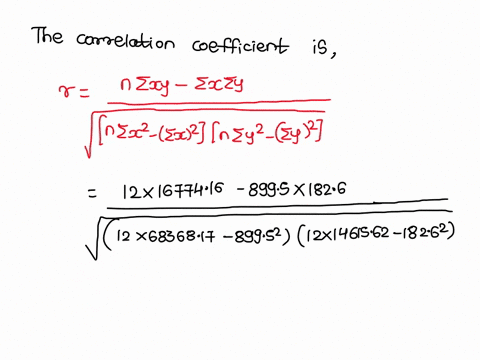 The correlation coefficient is,
r = n Σxy - Σx Σy
√[n Σx² - (Σx)²] [n Σy² - (Σy)²]
= 12 × 16774.16 - 899.5 × 182.6
√(12 × 68368.17 - 899.5²) (12 × 14615.62 - 182.6²)